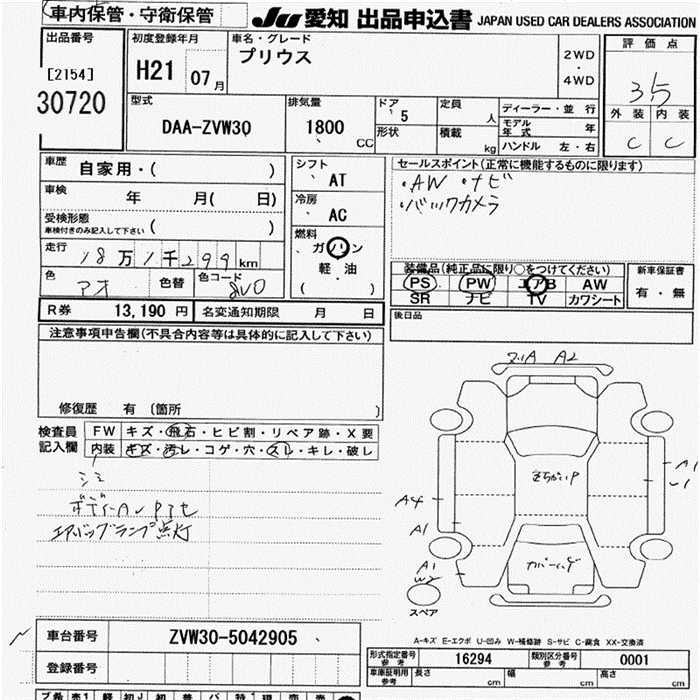 車内保管・守衛保管
JU 愛知 出品申込書 JAPAN USED CAR DEALERS ASSOCIATION
出品番号
[2154]
30720
初度登録年月
H21 07月
車名・グレード
プリウス
2WD
・
4WD
評価点
3.5
外装 内装
C C
型式
DAA-ZVW30
排気量
1800 CC
ドア
5
形状
定員
人
積載
kg
ディーラー・並行
モデル年式 年
ハンドル 左・右
車歴
自家用・( )
車検
年 月( 日)
受検形態
車検付きのみ記入して下さい ( )
走行
18万1千299km
色
アオ
色替
色コード
8V0
シフト
AT
冷房
AC
燃料
ガソリン
軽・油
( ・ )
セールスポイント(正常に機能するものに限ります)
・AW ・ナビ
・バックカメラ
装備品(純正品に限り○をつけてください)
PS PW エアB AW
SR ナビ TV カワシート
新車保証書
有・無
後日品
R券 13,190 円 名変通知期限 月 日
注意事項申告欄(不具合内容等は具体的に記入して下さい)
修復歴 有 〔箇所 〕
検査員
記入欄
FW キズ・飛石・ヒビ割・リペア跡・X要
内装 キズ・汚レ・コゲ・穴・スレ・キレ・破レ
エアバッグランプ点灯
A2
A4
A1
A1
A1
W2
スペア
A-キズ E-エクボ U-凹み W-補修跡 S-サビ C-腐食 XX-交換済
車台番号 ZVW30-5042905
登録番号
形式指定番号
参考
16294
類別区分番号
参考
0001
車庫証明用
参考
長さ cm 幅 cm 高さ cm